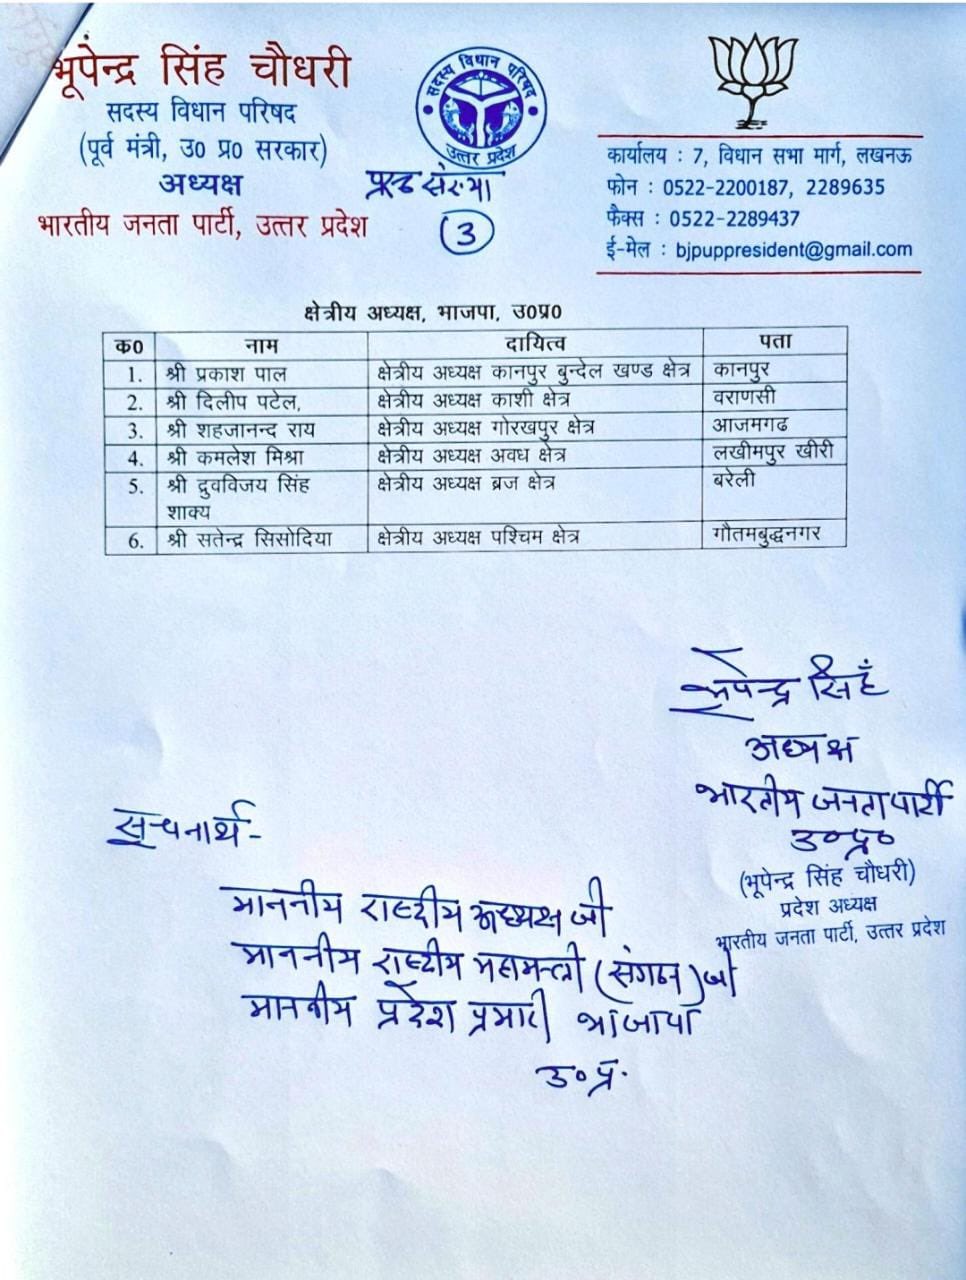 भूपेन्द्र सिंह चौधरी
सदस्य विधान परिषद
(पूर्व मंत्री, उ0 प्र0 सरकार)
अध्यक्ष
भारतीय जनता पार्टी, उत्तर प्रदेश
सदस्य विधान परिषद
उत्तर प्रदेश
पृष्ठ संख्या
3
कार्यालय : 7, विधान सभा मार्ग, लखनऊ
फोन : 0522-2200187, 2289635
फैक्स : 0522-2289437
ई-मेल : bjpuppresident@gmail.com
क्षेत्रीय अध्यक्ष, भाजपा, उ0प्र0
क0 नाम दायित्व पता
1. श्री प्रकाश पाल क्षेत्रीय अध्यक्ष कानपुर बुन्देल खण्ड क्षेत्र कानपुर
2. श्री दिलीप पटेल, क्षेत्रीय अध्यक्ष काशी क्षेत्र वराणसी
3. श्री शहजानन्द राय क्षेत्रीय अध्यक्ष गोरखपुर क्षेत्र आजमगढ
4. श्री कमलेश मिश्रा क्षेत्रीय अध्यक्ष अवध क्षेत्र लखीमपुर खीरी
5. श्री द्रुवविजय सिंह क्षेत्रीय अध्यक्ष ब्रज क्षेत्र बरेली
शाक्य
6. श्री सतेन्द्र सिसोदिया क्षेत्रीय अध्यक्ष पश्चिम क्षेत्र गौतमबुद्धनगर
भूपेन्द्र सिंह
अध्यक्ष
भारतीय जनता पार्टी
उ०प्र०
(भूपेन्द्र सिंह चौधरी)
प्रदेश अध्यक्ष
भारतीय जनता पार्टी, उत्तर प्रदेश
सूचनार्थ-
माननीय राष्ट्रीय अध्यक्ष जी
माननीय राष्ट्रीय महामन्त्री (संगठन) जी
माननीय प्रदेश प्रभारी भाजापा
उ०प्र.